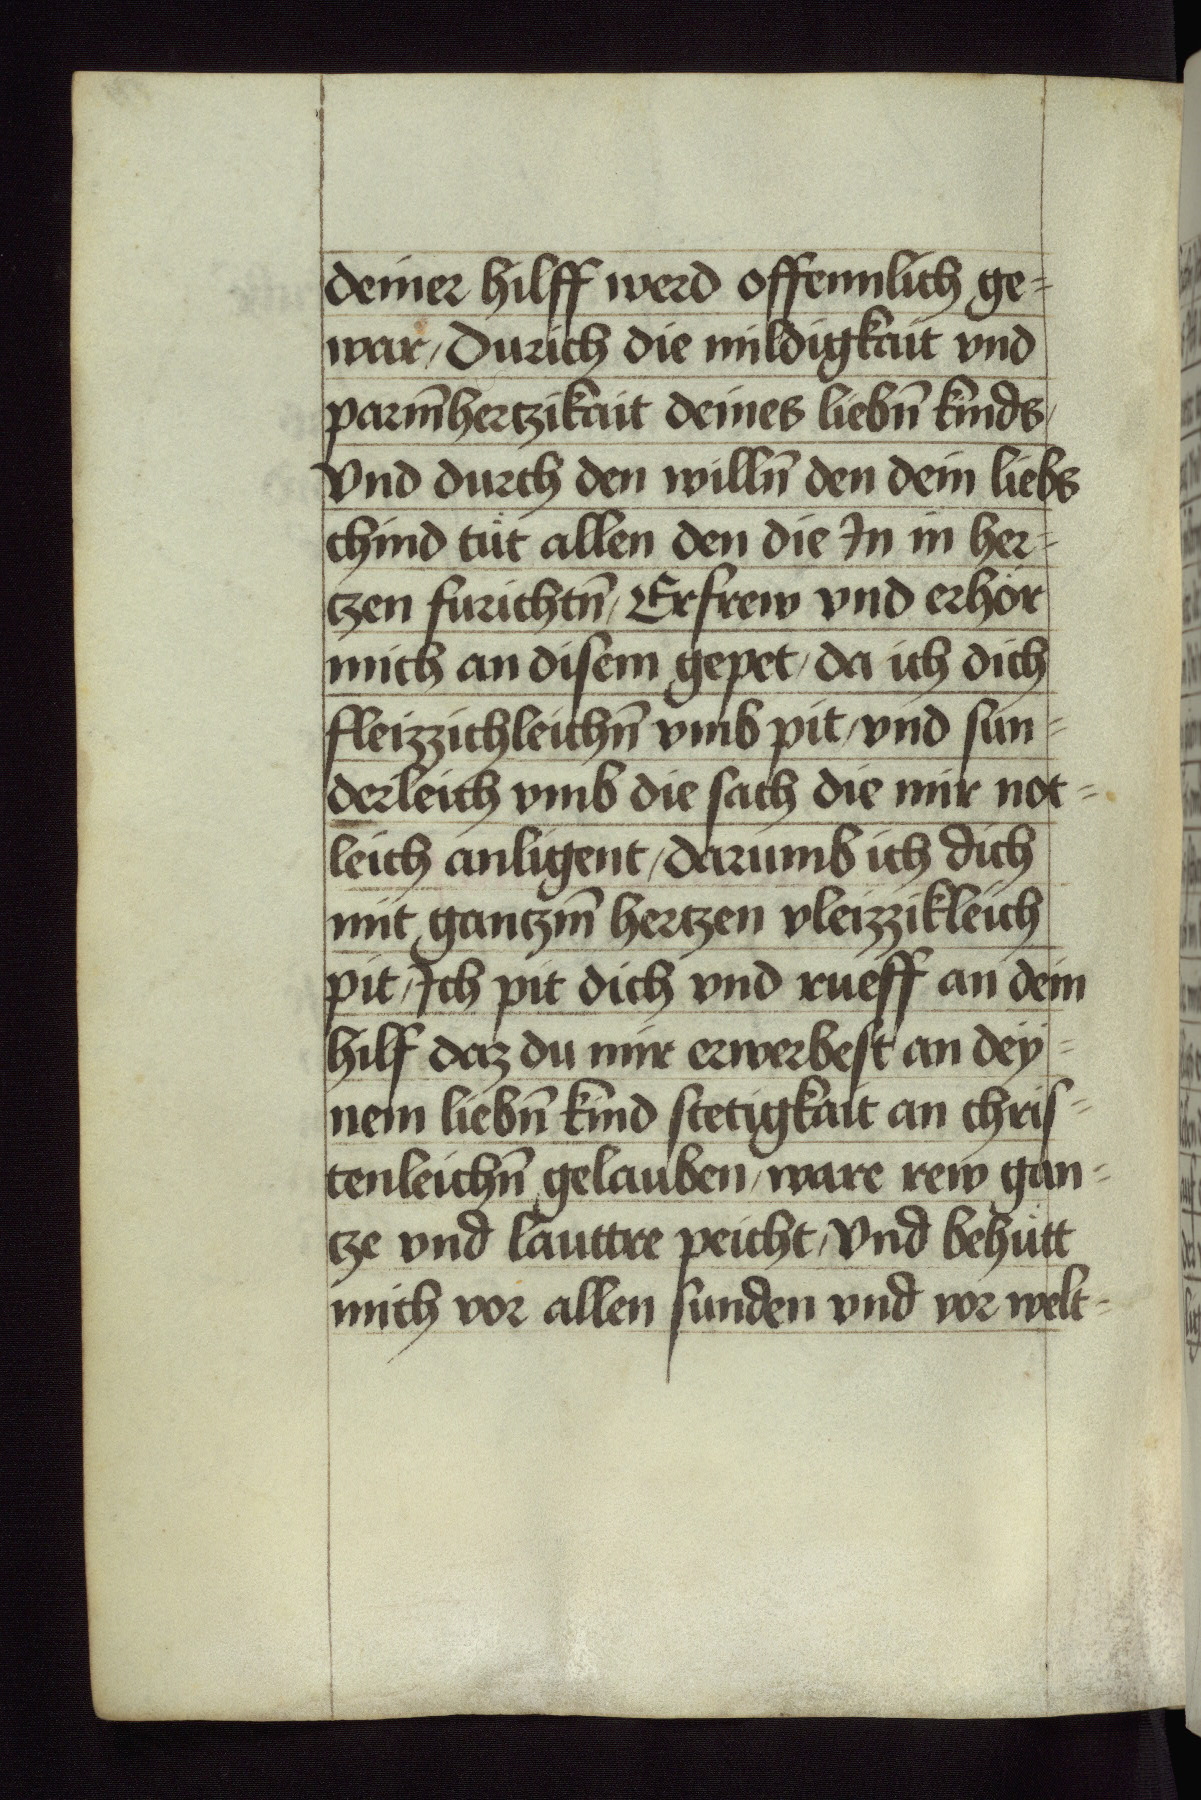 deiner hilff werd offennlich ge=
war / Durich die mildigkait vnd
parm̄hertzikait deines liebn̄ kinds /
Vnd durch den willn̄ den dein liebs
chind tüt allen den die In in her=
tzen furichtn̄ / Erfrew vnd erhör
mich an disem gepet / da ich dich
fleizzichleichn̄ vmb pit / vnd sun=
derleich vmb die sach die mir not=
leich anligent / darumb ich dich
mit gantzm̄ hertzen vleizzikleich
pit / Ich pit dich vnd rueff an dein
hilf daz du mir erwerbest an dey=
nem liebn̄ kind stetigkait an chris=
tenleichn̄ gelauben / ware rew gan=
tze vnd lauttre peicht / Vnd behütt
mich vor allen sunden vnd vor welt=